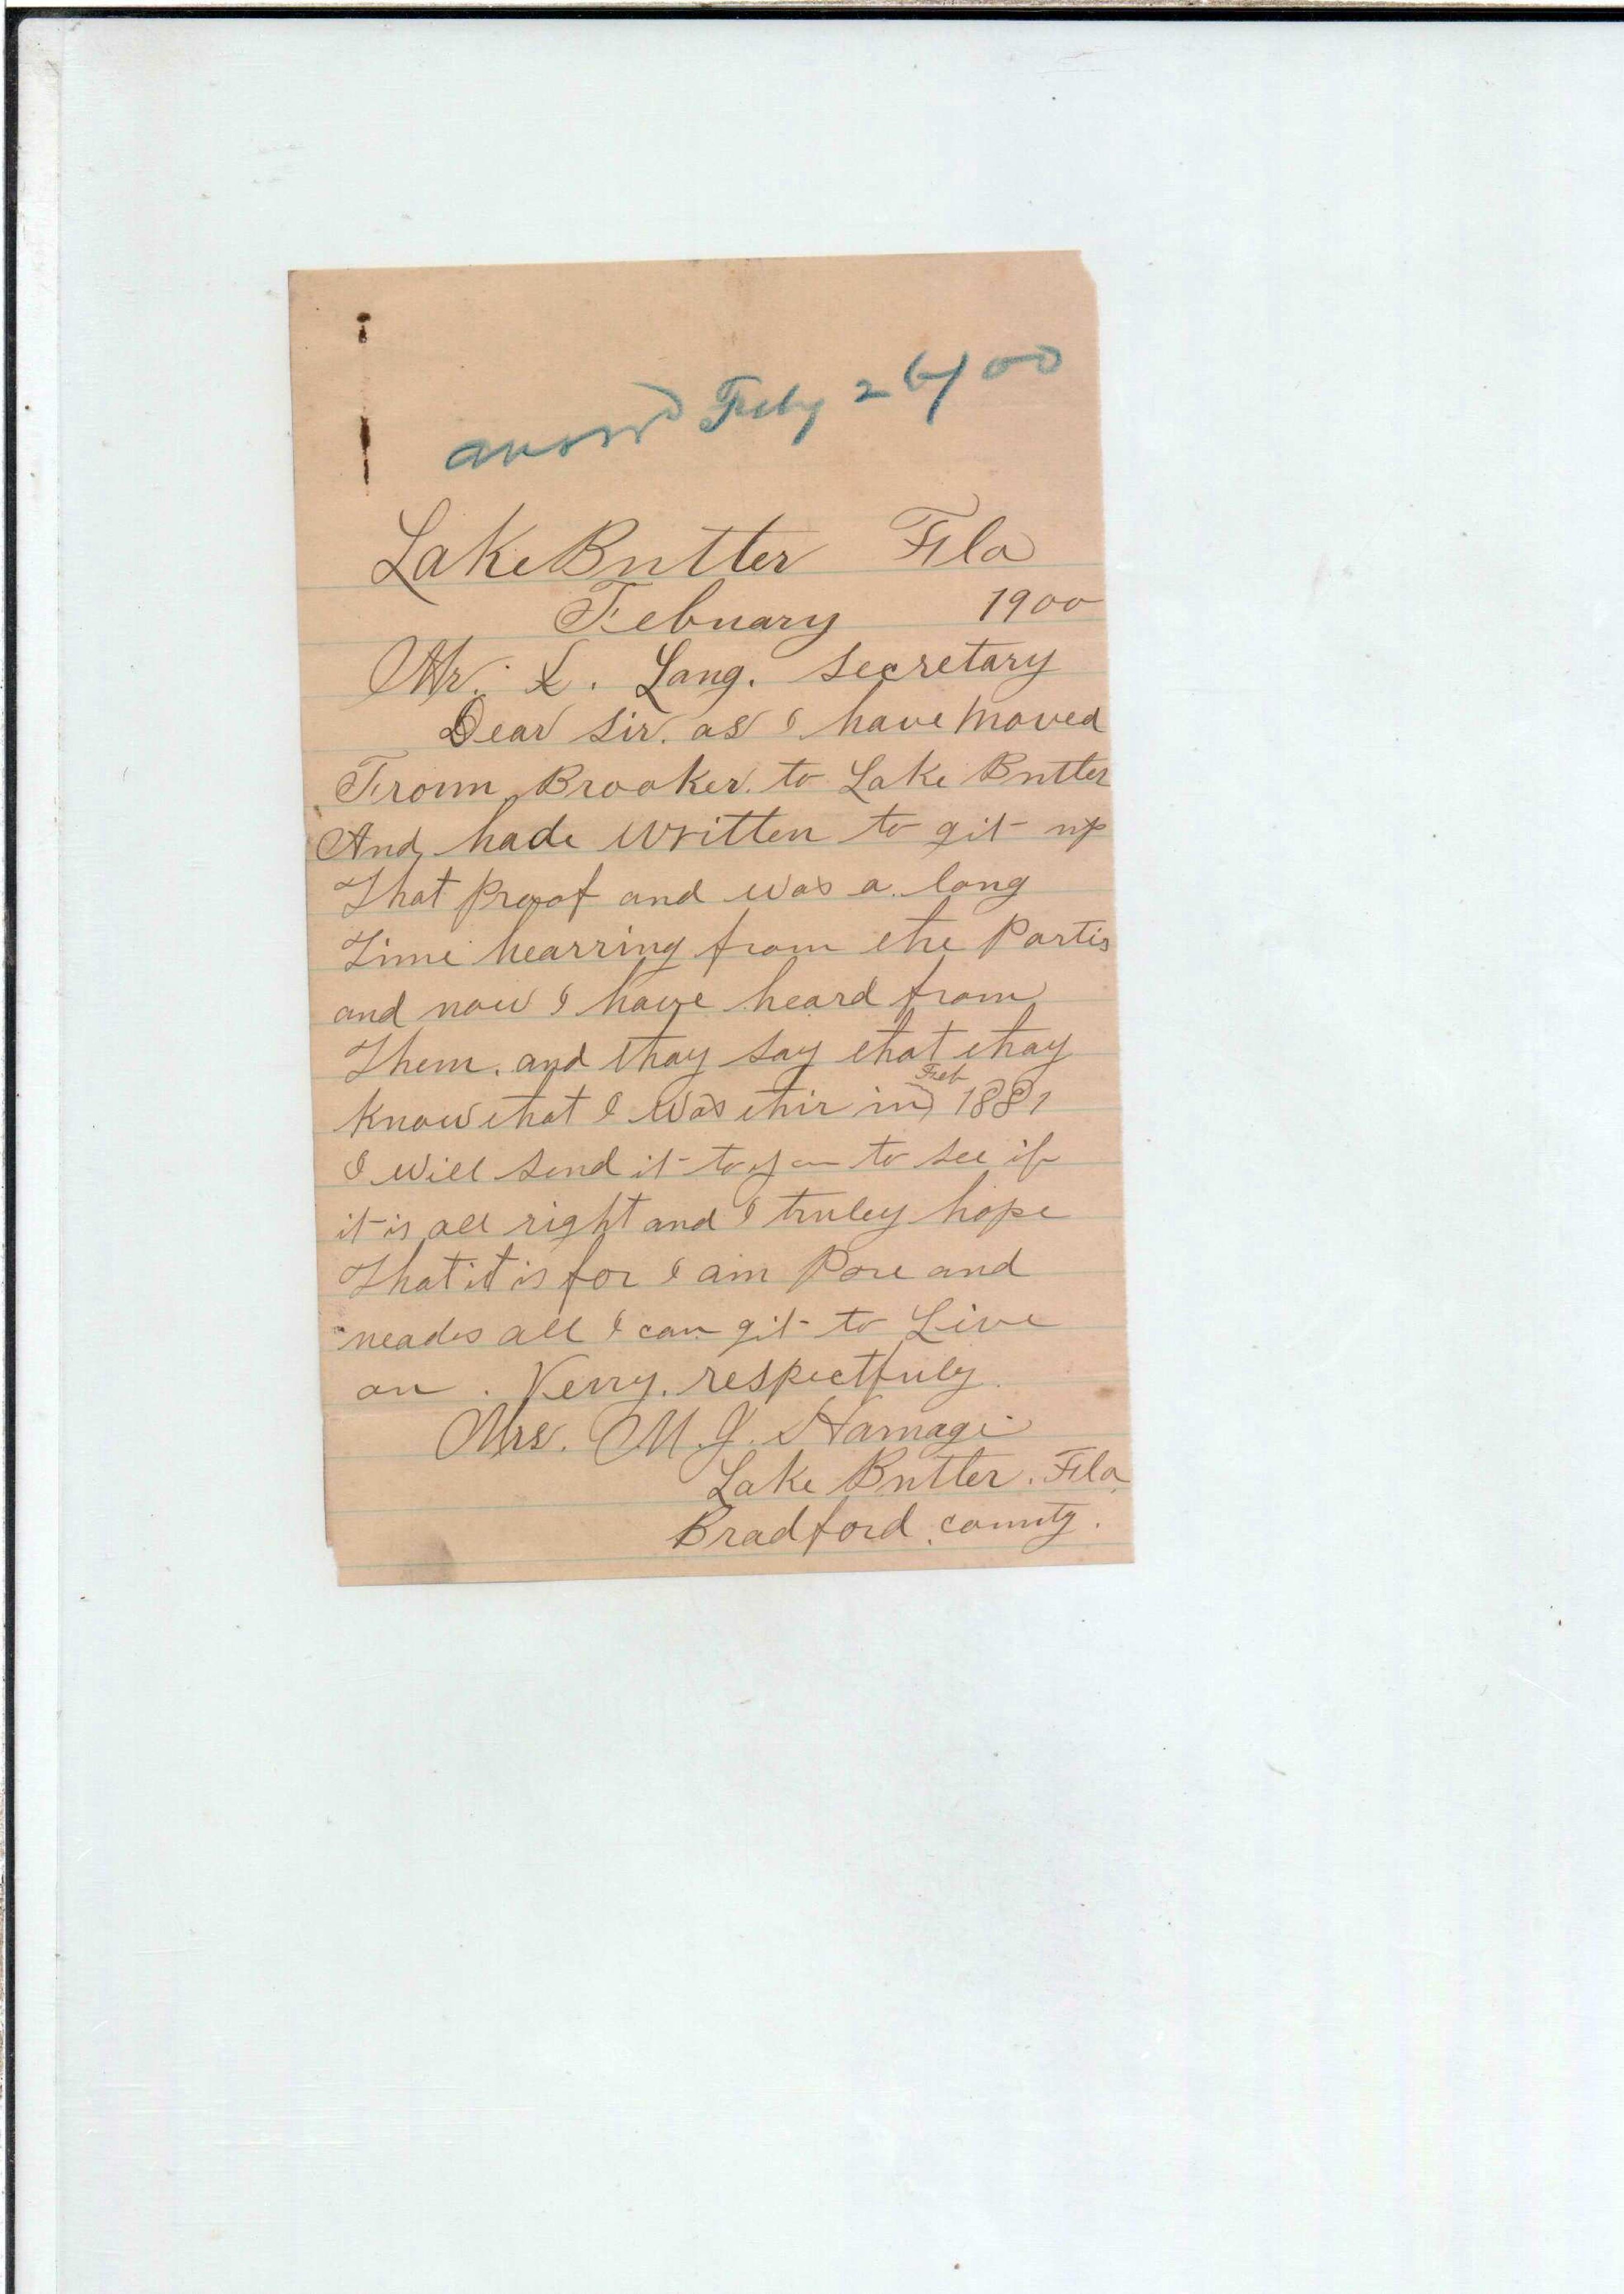 answd Feby 26/00
Lake Butter Fla
Febuary 1900
Mr. L. Lang. secretary
Dear sir. as I have moved
From Brooker. to Lake Butter
And hade written to git up
That proof and was a long
Time hearring from the Partis
and now I have heard from
Them. and thay say that thay
know that I was thir in Feb 1881
I will send it to you to see if
it is all right and I truley hope
That it is for I am Pore and
neades all I can git to Live
on. Verry. respectfuly.
Mrs. M. J.
Lake Butter. Fla.
Bradford. county.